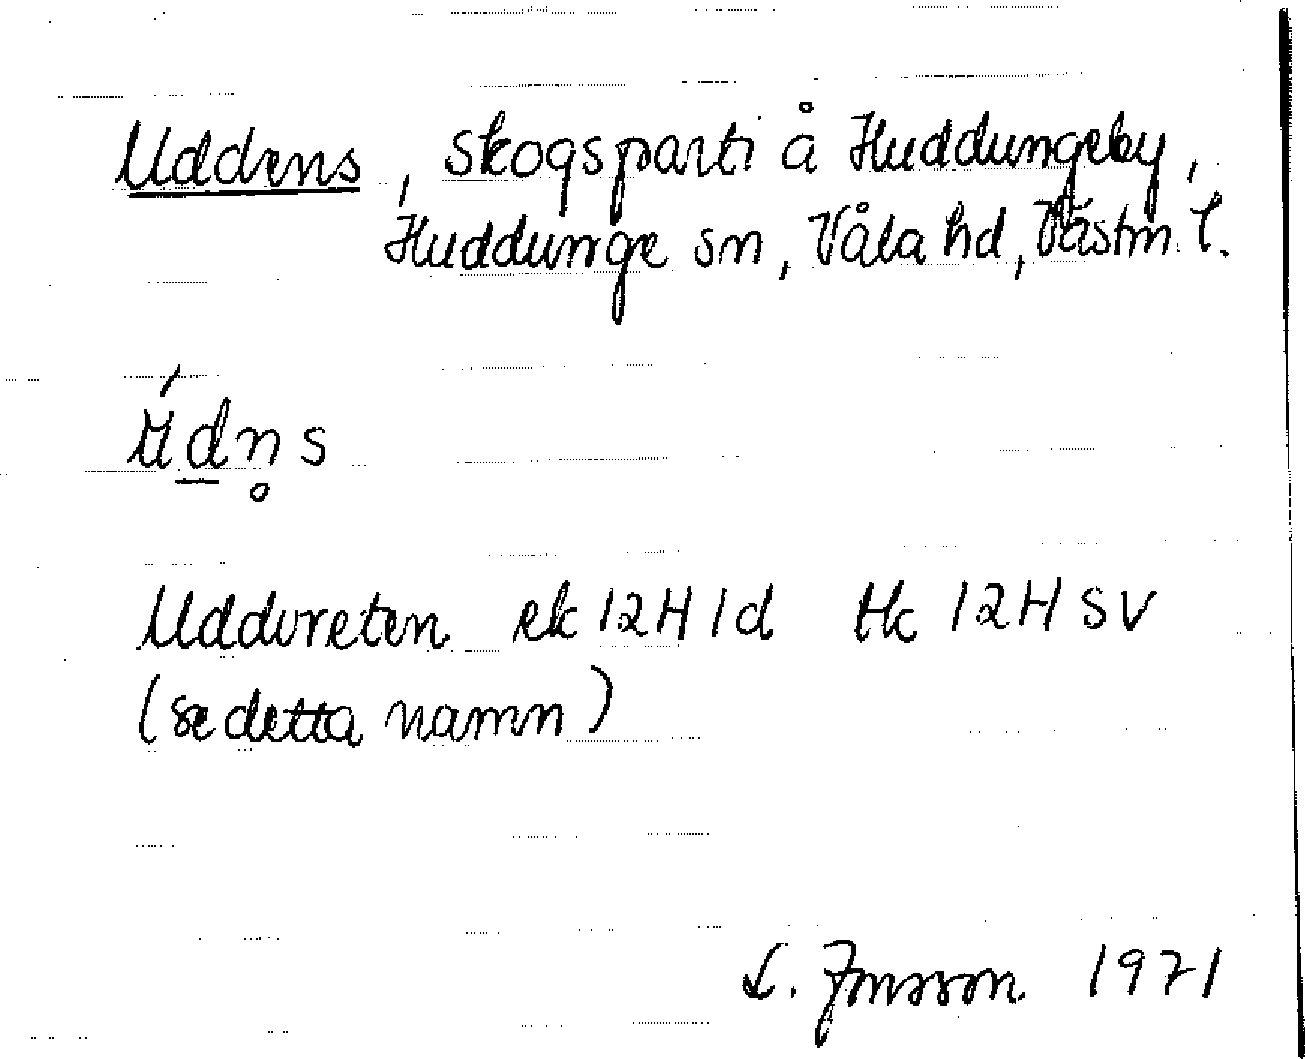 Uddens, skogsparti å Huddungeby,
Huddunge sn, Våla hd, Västm. l.
ú̵d̲n̥s
Uddvreten ek 12H 1d tk 12H SV
(se detta namn)
L. Jonsson 1971